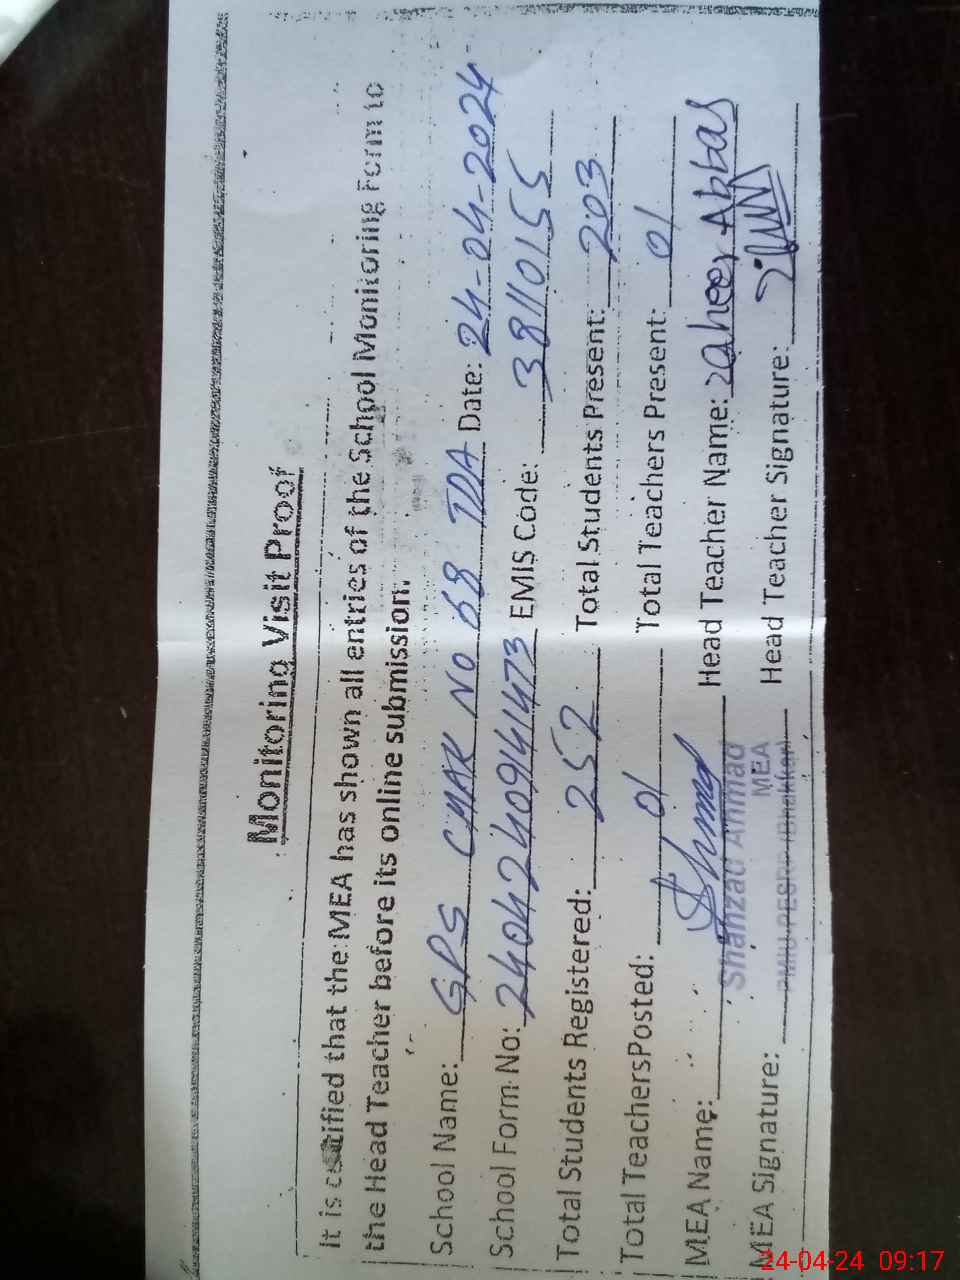 Monitoring Visit Proof
It is certified that the MEA has shown all entries of the School Monitoring Form to
the Head Teacher before its online submission.
School Name: GPS CHAK No 68 TDA Date: 24-04-2024
School Form No: 24042409141473 EMIS Code: 38110155
Total Students Registered: 252 Total Students Present: 203
Total TeachersPosted: 01 Total Teachers Present: 01
MEA Name: Head Teacher Name: Zaheer Abbas
Shahzad Ahmad
MEA
PMIU-PESRP (Bhakkar)
MEA Signature: Head Teacher Signature:
24-04-24 09:17